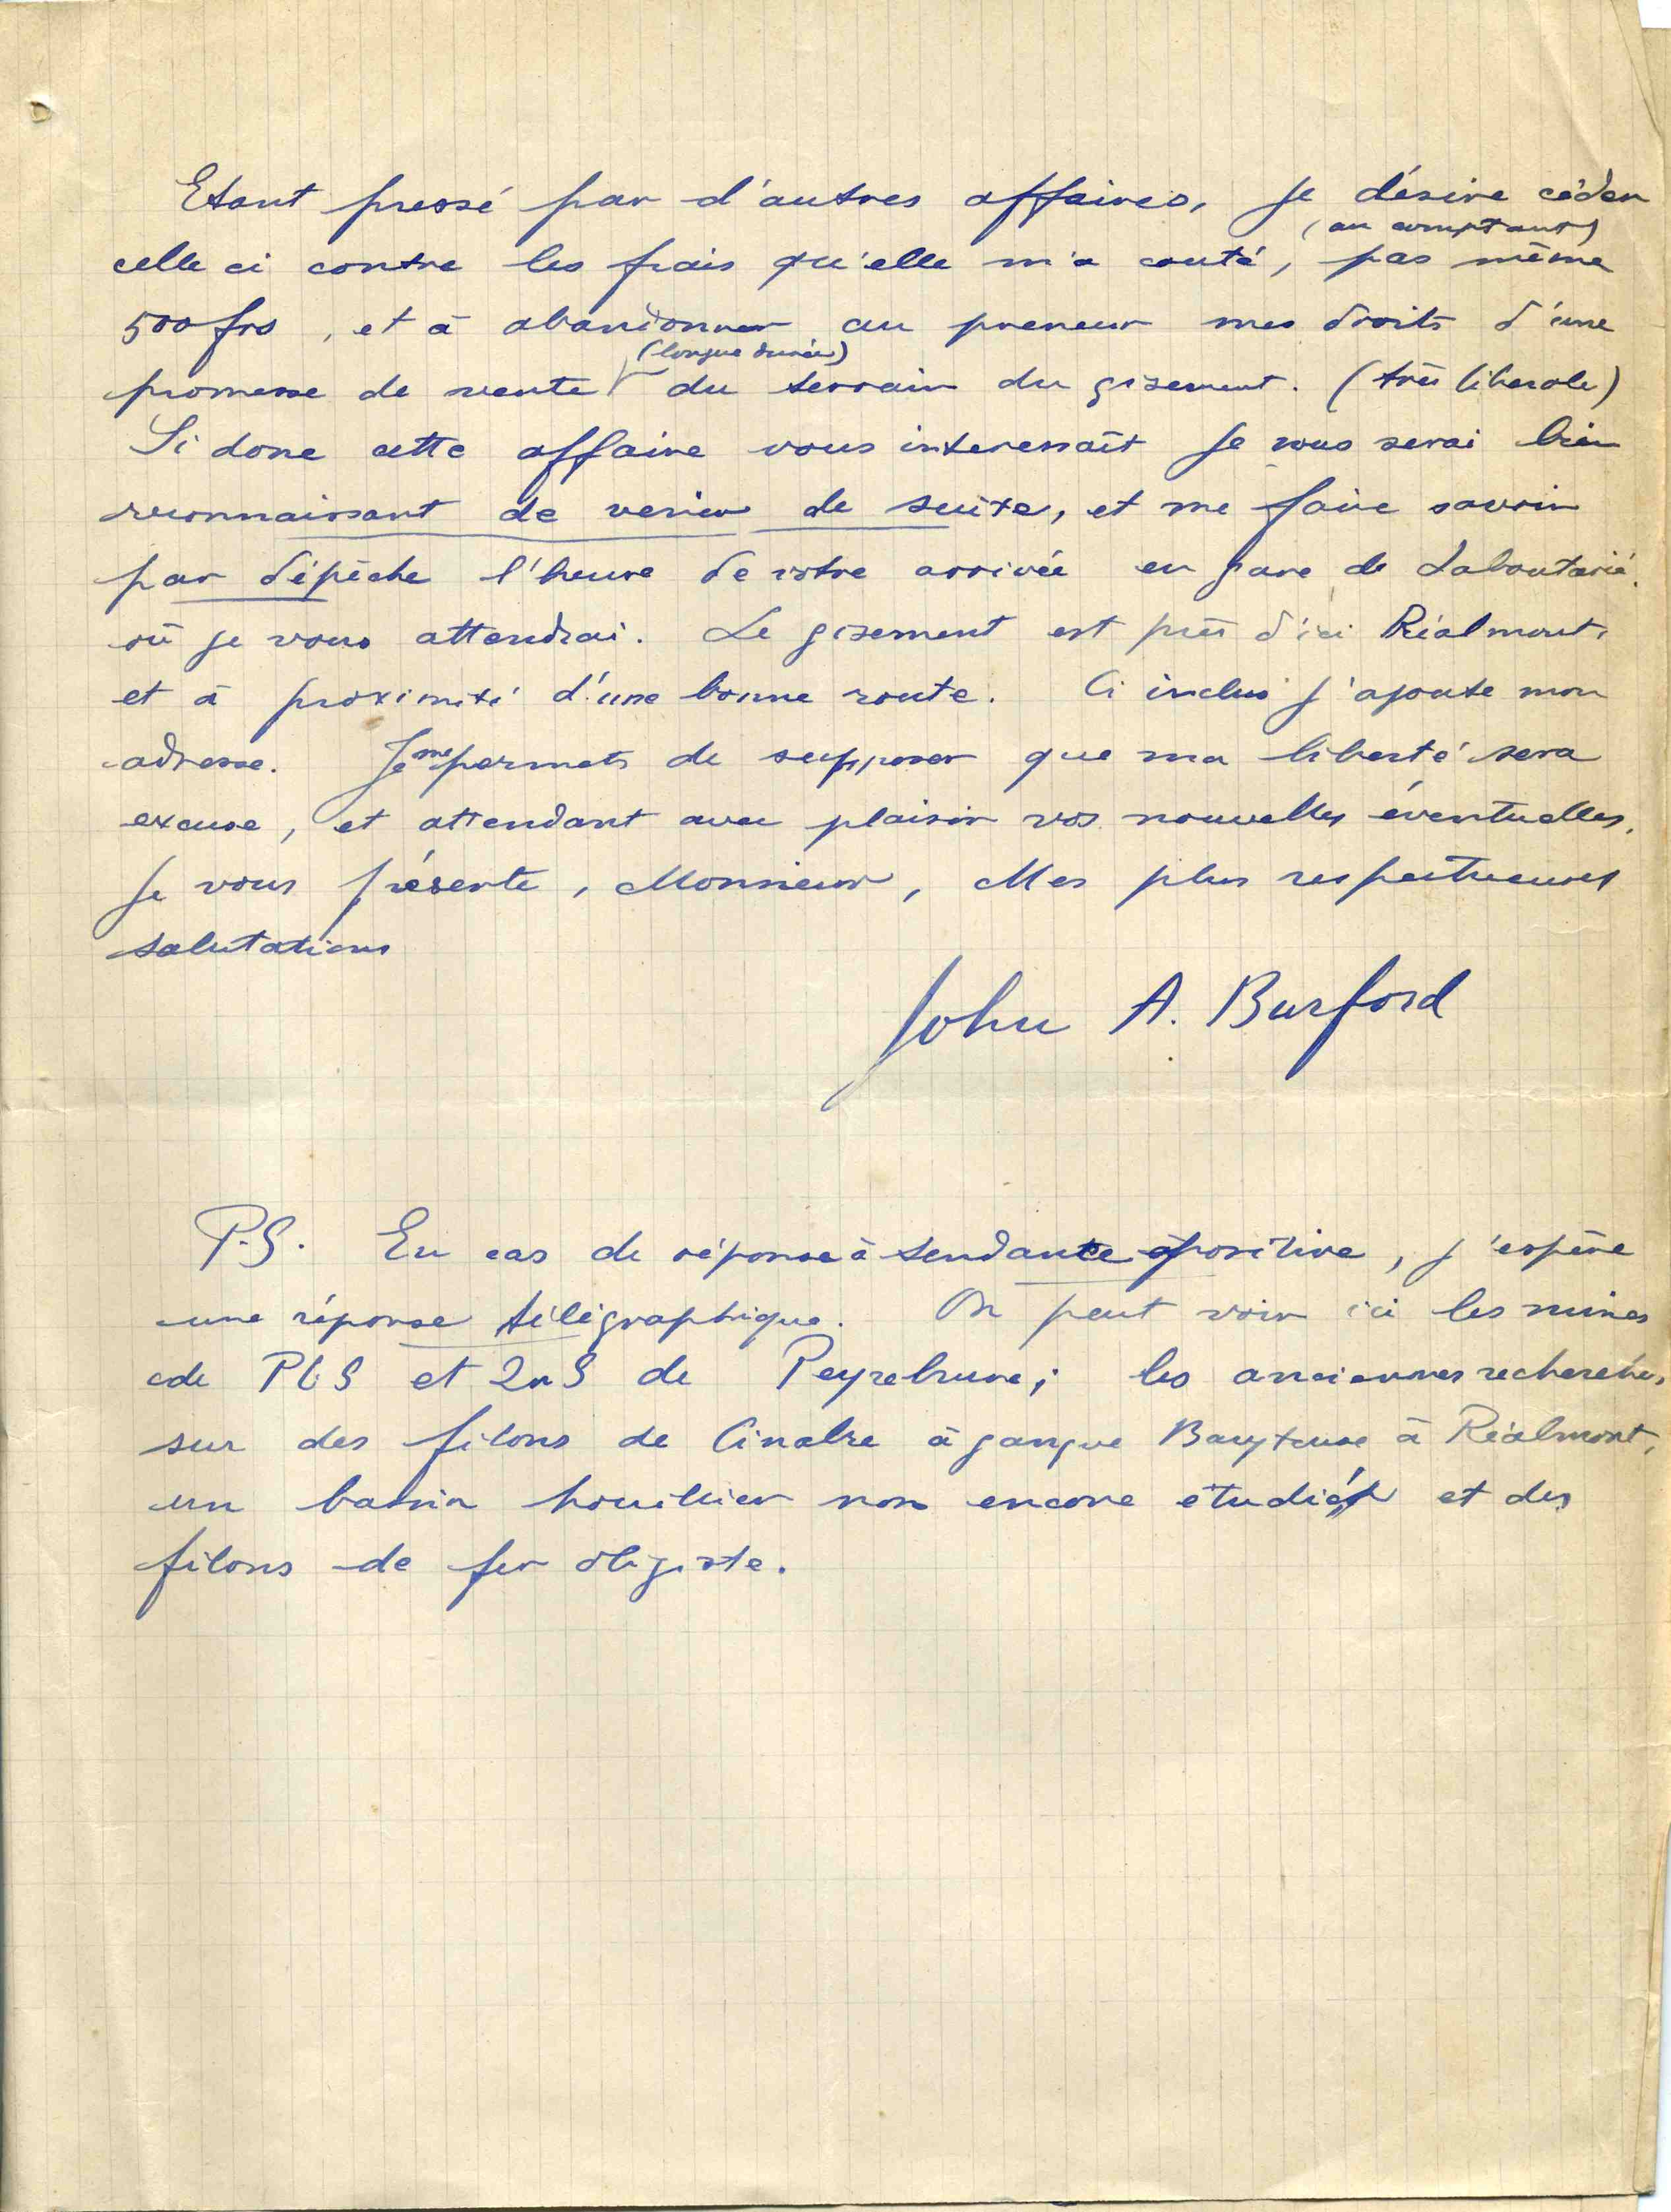 Etant pressé par d'autres affaires, je désire céder
(au comptant)
celle ci contre les frais qu'elle m'a couté, pas même
500 frs, et à abandonner au preneur mes droits d'une
(longue durée)
promesse de vente du terrain du gisement. (très liberale)
Si donc cette affaire vous interessait je vous serai bien
reconnaissant de venir de suite, et me faire savoir
par dépêche l'heure de votre arrivée en gare de Laboutarié,
où je vous attendrai. Le gisement est près d'ici Réalmont,
et à proximité d'une bonne route. Ci inclus j'ajoute mon
adresse. Je me permets de supposer que ma liberté sera
excuse, et attendant avec plaisir vos nouvelles éventuelles,
Je vous présente, Monsieur, Mes plus respectueuses
salutations
John A. Burford
P.S. En cas de réponse à tendante positive, j'espère
une réponse télégraphique. On peut voir ici les mines
de PbS et ZnS de Peyrebrune; les anciennes recherches,
sur des filons de Cinabre à gangue Barytense à Réalmont,
un bassin houillier non encore étudié et des
filons de fer oligiste.